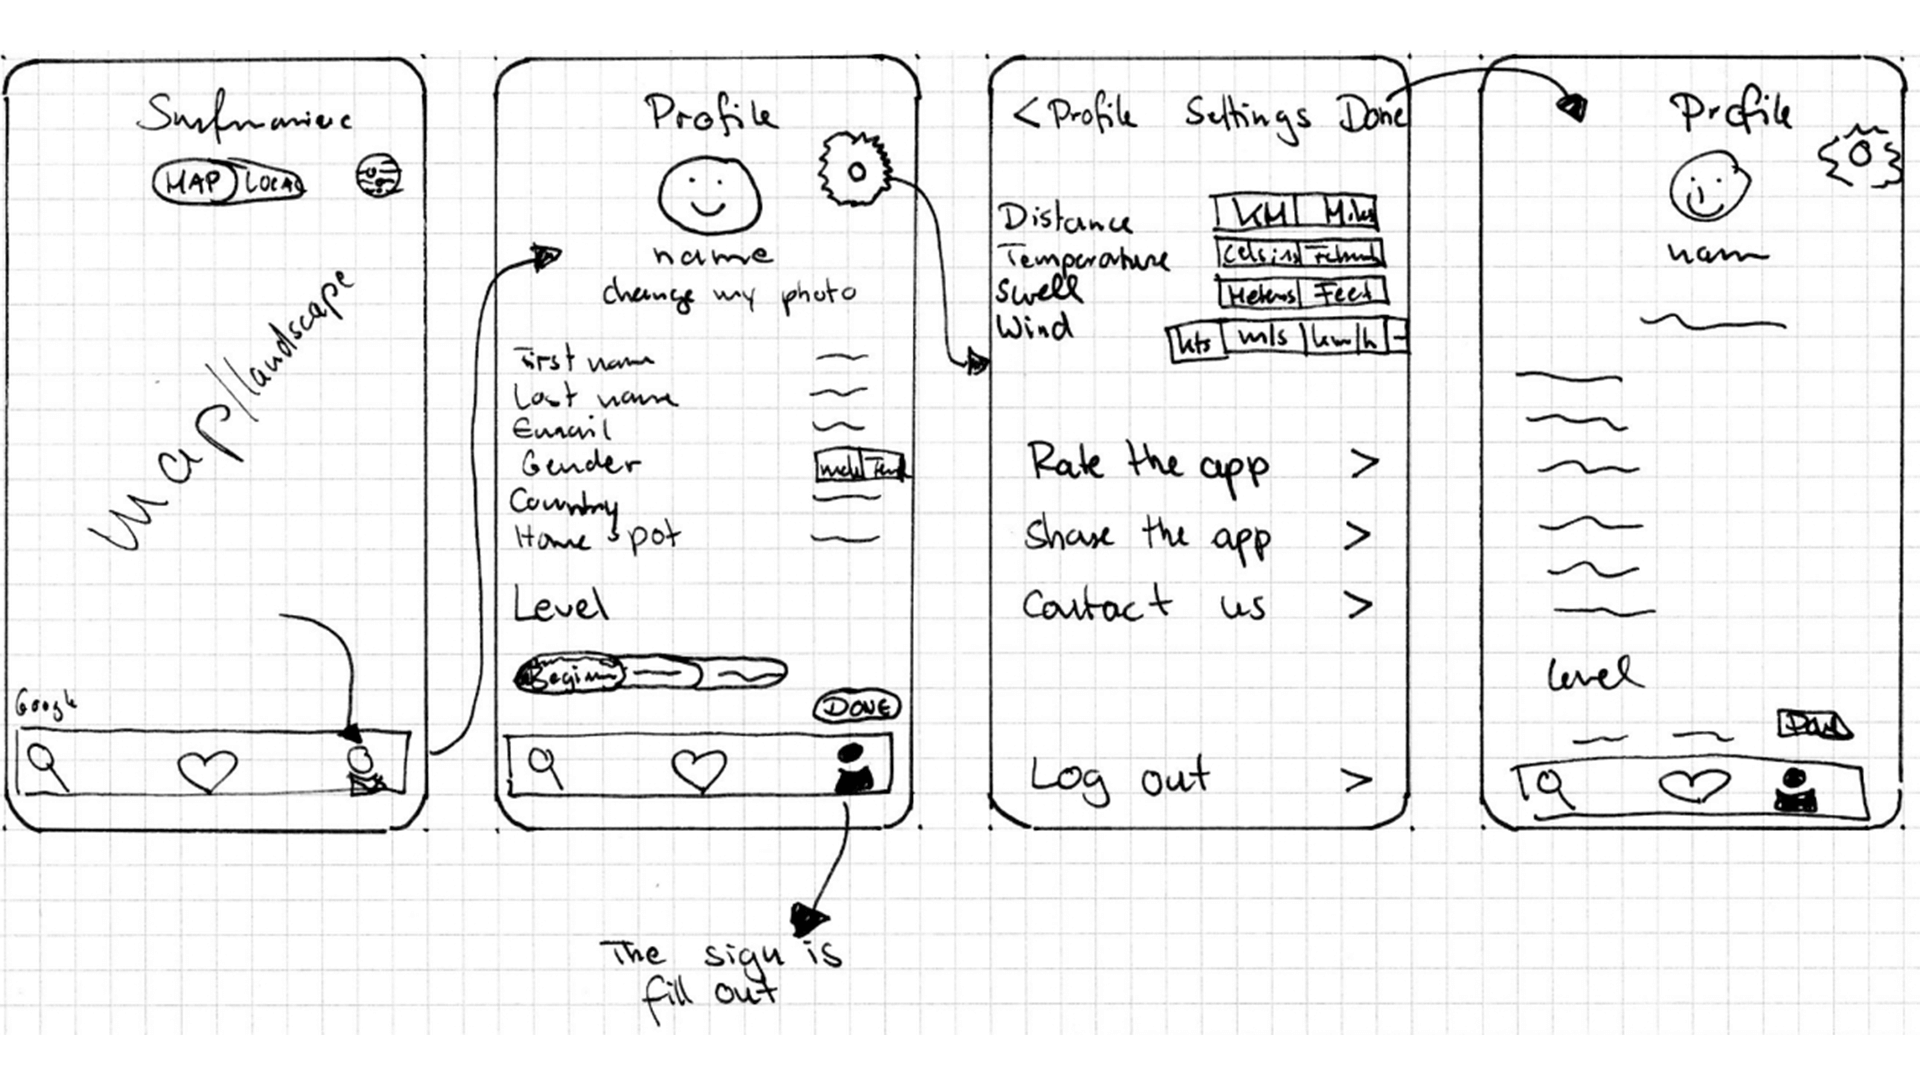 MAP LOCAL
map/landscape
Google
Profile
name
change my photo
First name
Last name
Email
Gender
Country
Home spot
Level
DONE
The sign is
fill out
< Profile Settings Done
Distance KM Miles
Temperature
Swell Meters Feet
Wind kts m/s km/h
Rate the app >
Share the app >
Contact us >
Log out >
Profile
nam
level